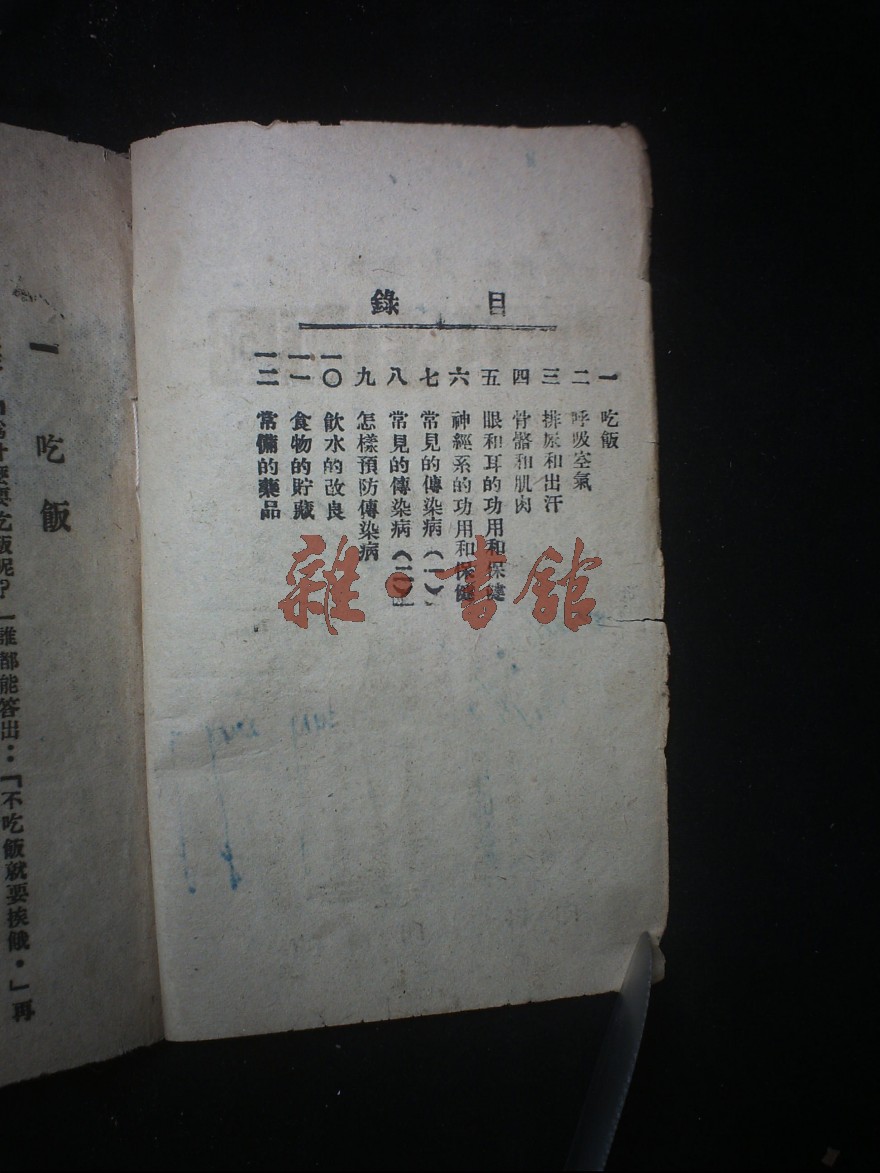 目錄
一 吃飯
二 呼吸空氣
三 排尿和出汗
四 骨骼和肌肉
五 眼和耳的功用和保健
六 神經系的功用和保健
七 常見的傳染病(一)
八 常見的傳染病(二)
九 怎樣預防傳染病
一〇 飲水的改良
一一 食物的貯藏
一二 常備的藥品
雜·書館
一 吃飯
「爲什麼要吃飯呢?」誰都能答出:「不吃飯就要挨餓。」再